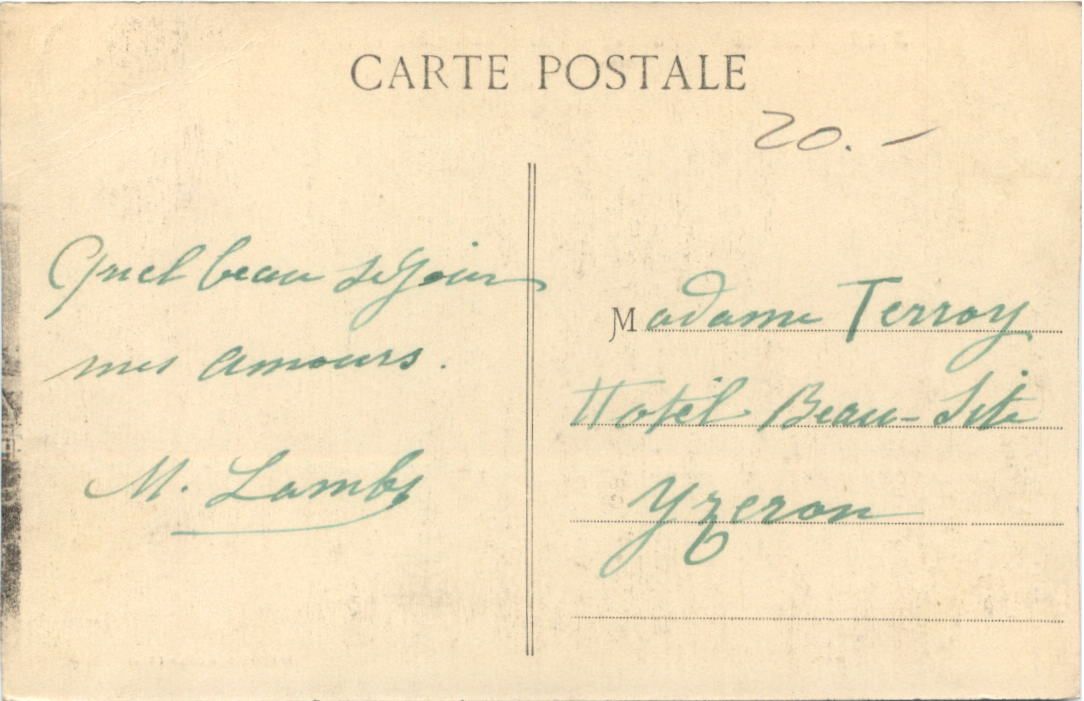 CARTE POSTALE
20.-
Quel beau séjour
mes amours.
M. Lamby
Madame Terroy
Hotel Beau-Site
Yzeron